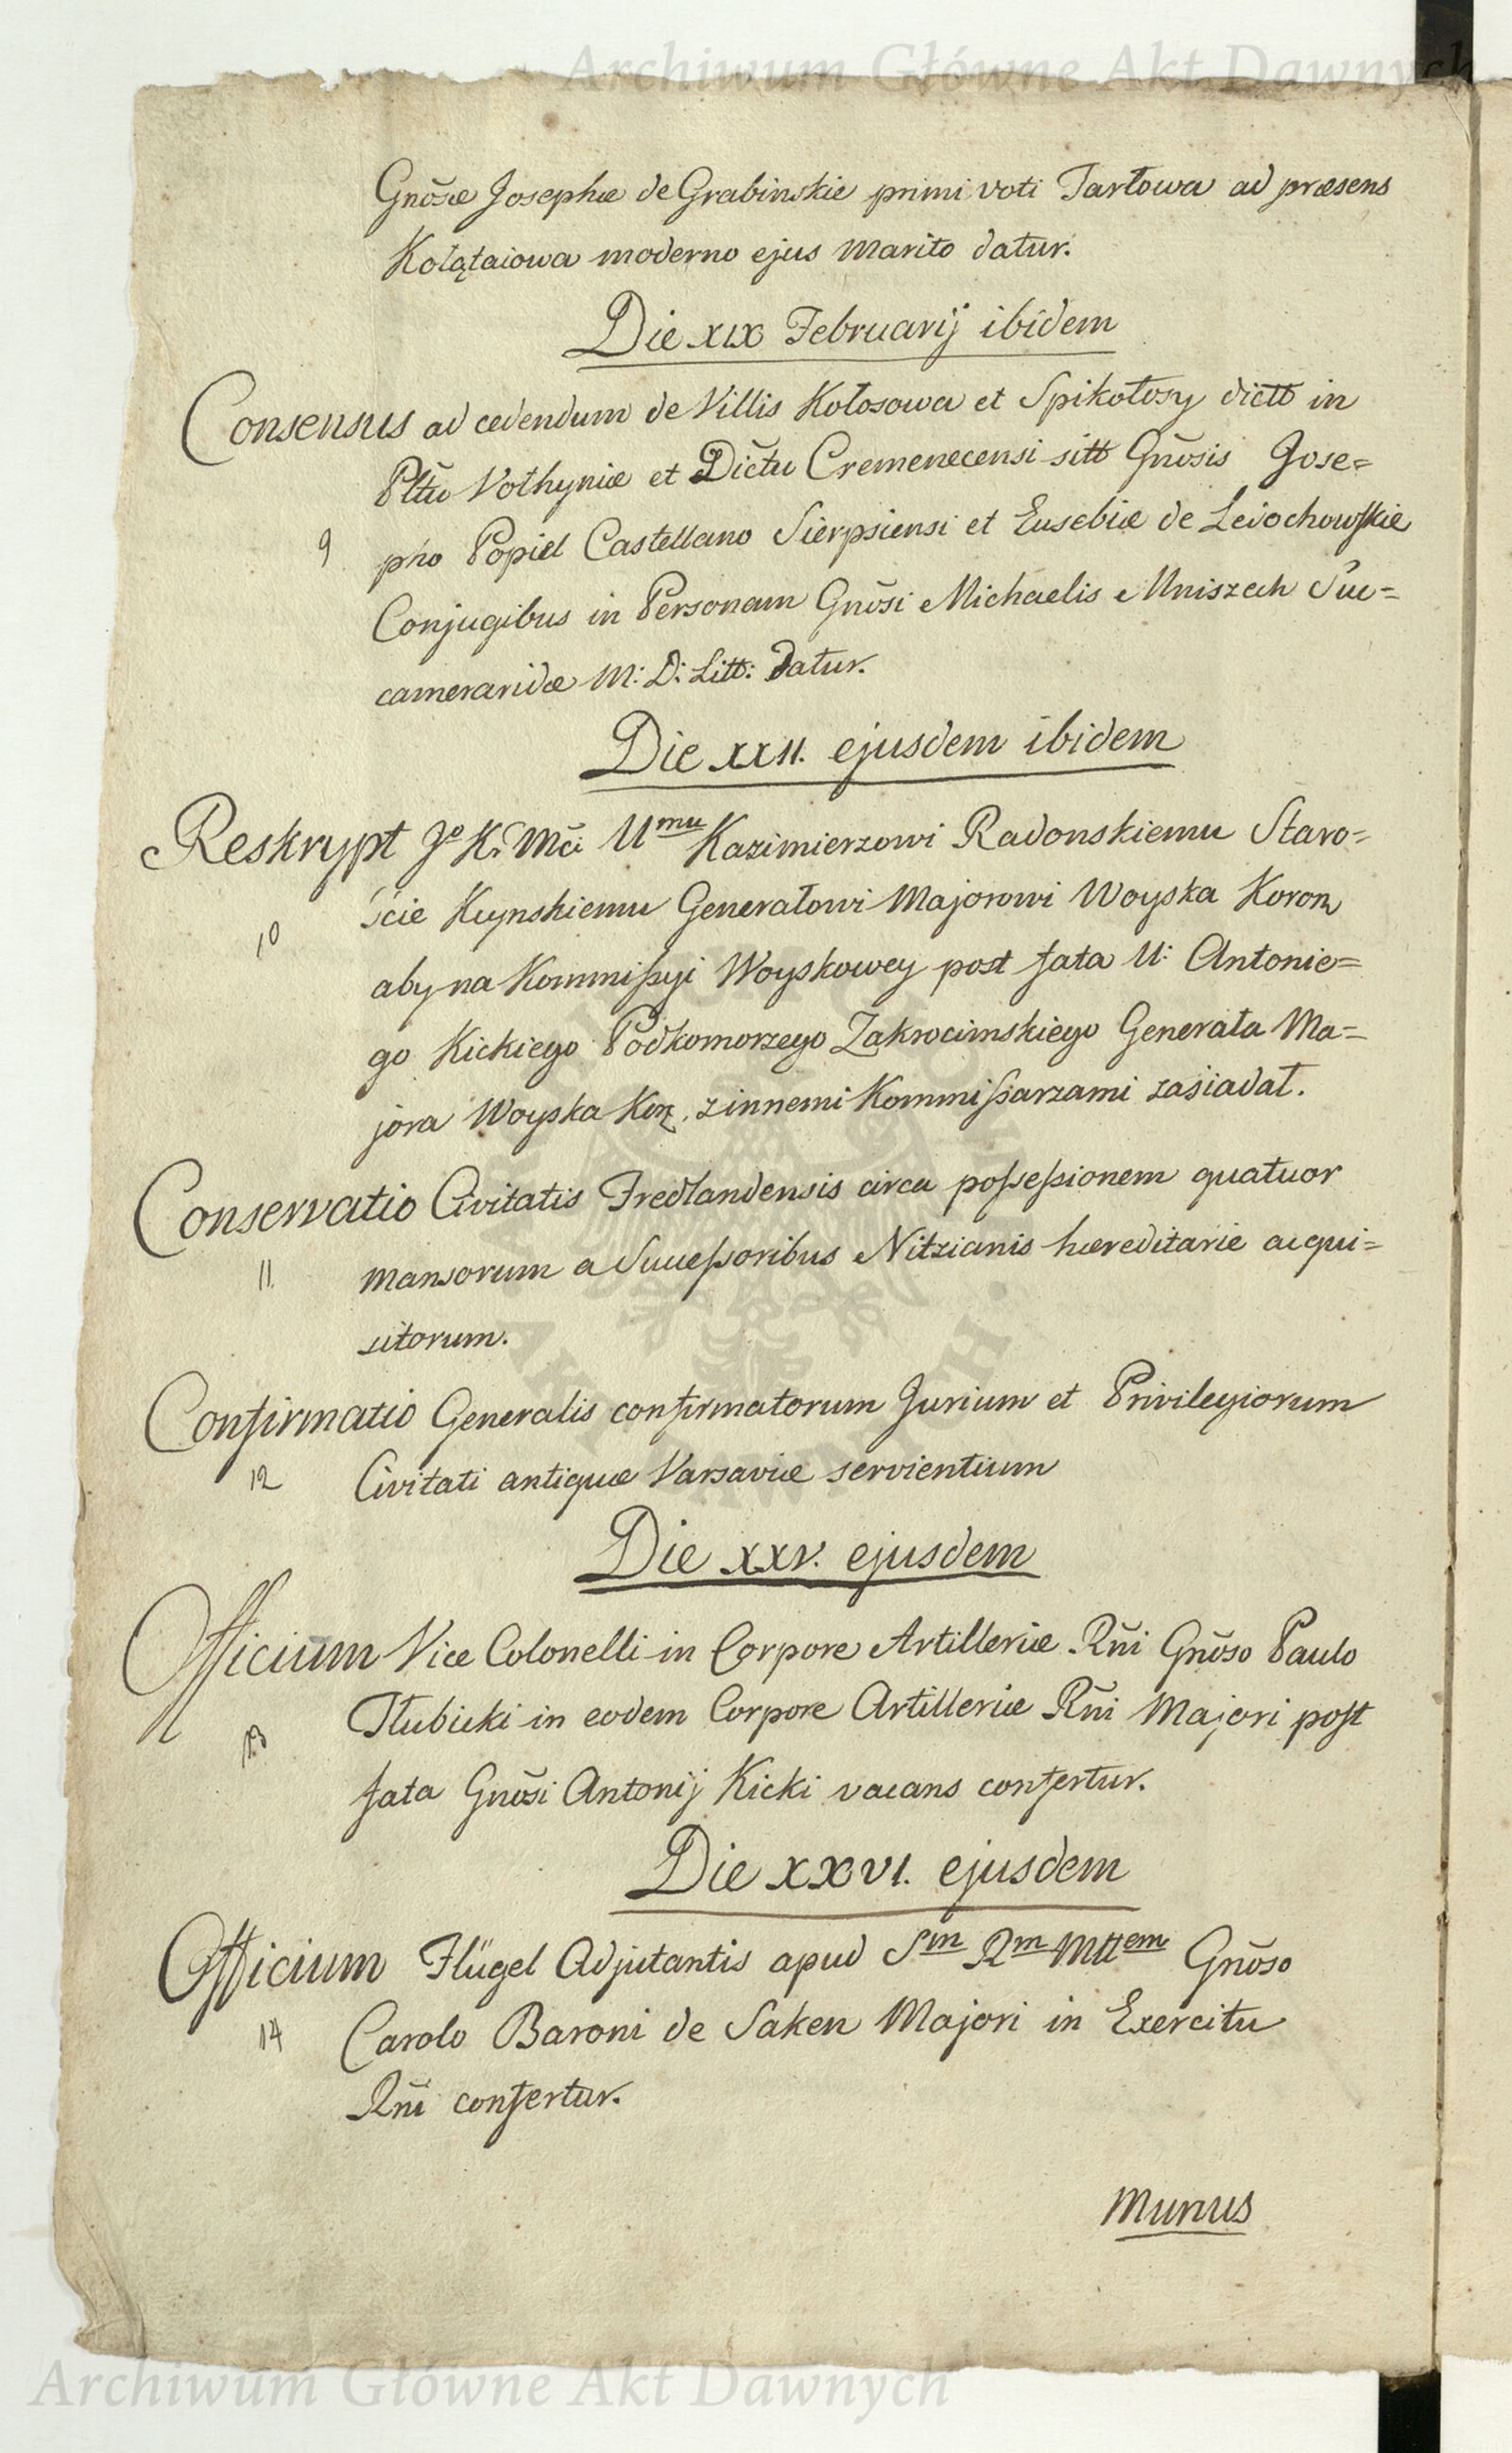 Archiwum Główne Akt Dawnych
Gnõsæ Josephæ de Grabinskie primi voti Tarłowa ad præsens
Kołątaiowa moderno ejus Marito datur.
Die XIX Februarij ibidem
Consensus ad cedendum de Villis Kołosowa et Spikołosy dictt in
Pltũ Volhyniæ et Dictũ Cremenecensi sitt Gnõsis Jose=
9 pho Popiel Castellano Sierpsiensi et Eusebiæ de Ledochowskie
Conjugibus in Personam Gnõsi Michaelis Mniszech Suc=
cameraridæ M: D: Litt: Datur.
Die XXII. ejusdem ibidem
Reskrypt Jº K. Mći Umu Kazimierzowi Radonskiemu Staro=
ście Kcynskiemu Generałowi Majorowi Woyska Koron
10
aby na Kommissyi Woyskowey post fata U: Antonie=
go Kickiego Podkomorzego Zakrocimskiego Generała Ma=
jora Woyska Kor. z innemi Kommissarzami zasiadał.
Conservatio Civitatis Fredlandensis circa possessionem quatuor
11 mansorum a Successoribus Nitzianis hæreditarie acqui=
sitorum.
Confirmatio Generalis confirmatorum Jurium et Privilegiorum
12 Civitati antiquæ Varsaviæ servientium
Die XXV. ejusdem
Officium Vice Colonelli in Corpore Artilleriæ Rñi Gnõso Paulo
13 Hubicki in eodem Corpore Artilleriæ Rñi Majori post
fata Gnõsi Antonij Kicki vacans confertur.
Die XXVI. ejusdem
Officium Flügel Adjutantis apud Sm Rm Mttem Gnõso
14 Carolo Baroni de Saken Majori in Exercitu
Rñi confertur.
Munus
Archiwum Główne Akt Dawnych